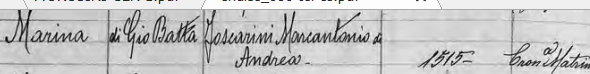 Marina di Gio Batta Foscarini Marcantonio di
Andrea - 1515 - Cron.a Matrim